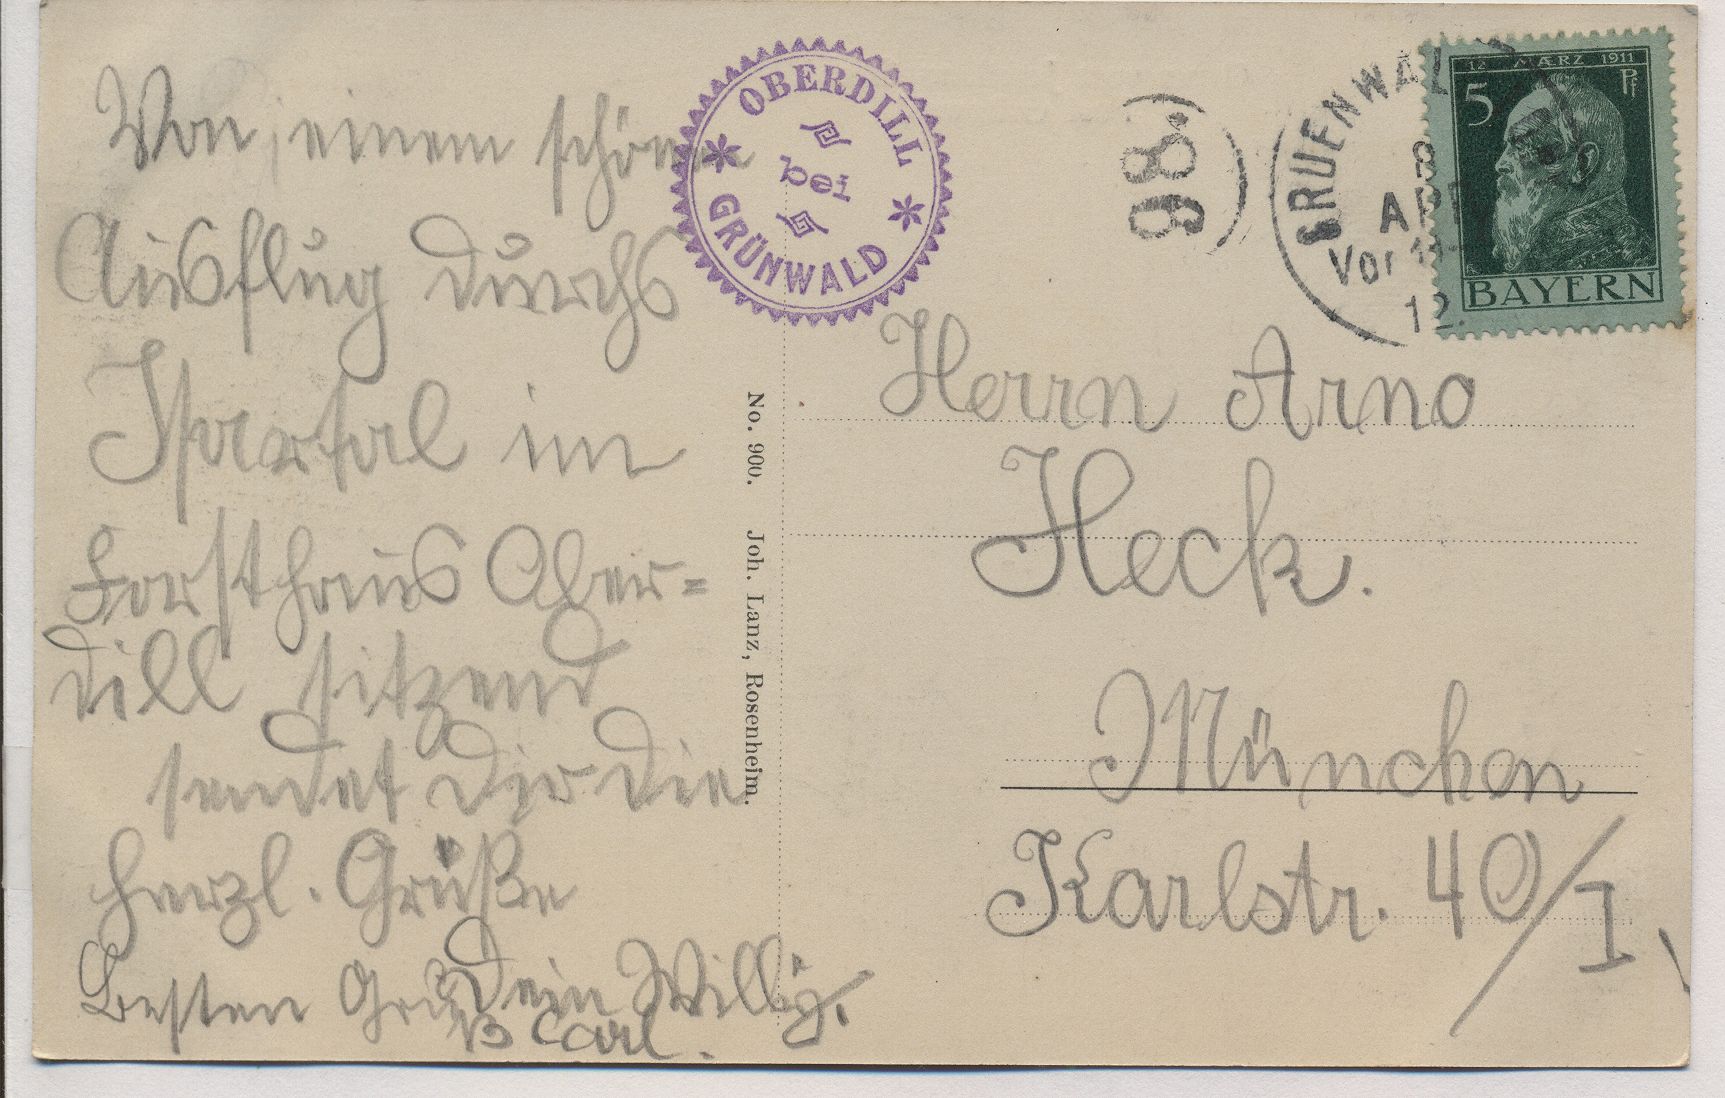 Von einem schönen
Ausflug durchs
Isartal im
Forsthaus Ober=
dill sitzend
sendet Dir die
herzl. Grüße
Dein Willy.
Besten Gruß Carl.
OBERDILL
bei
GRÜNWALD
No. 900. Joh. Lanz, Rosenheim.
98
GRUENWAL
8
APR
Vor 11-
12.
12 MÆRZ 1911
5 Pf
BAYERN
Herrn Arno
Heck.
München
Karlstr. 40/I